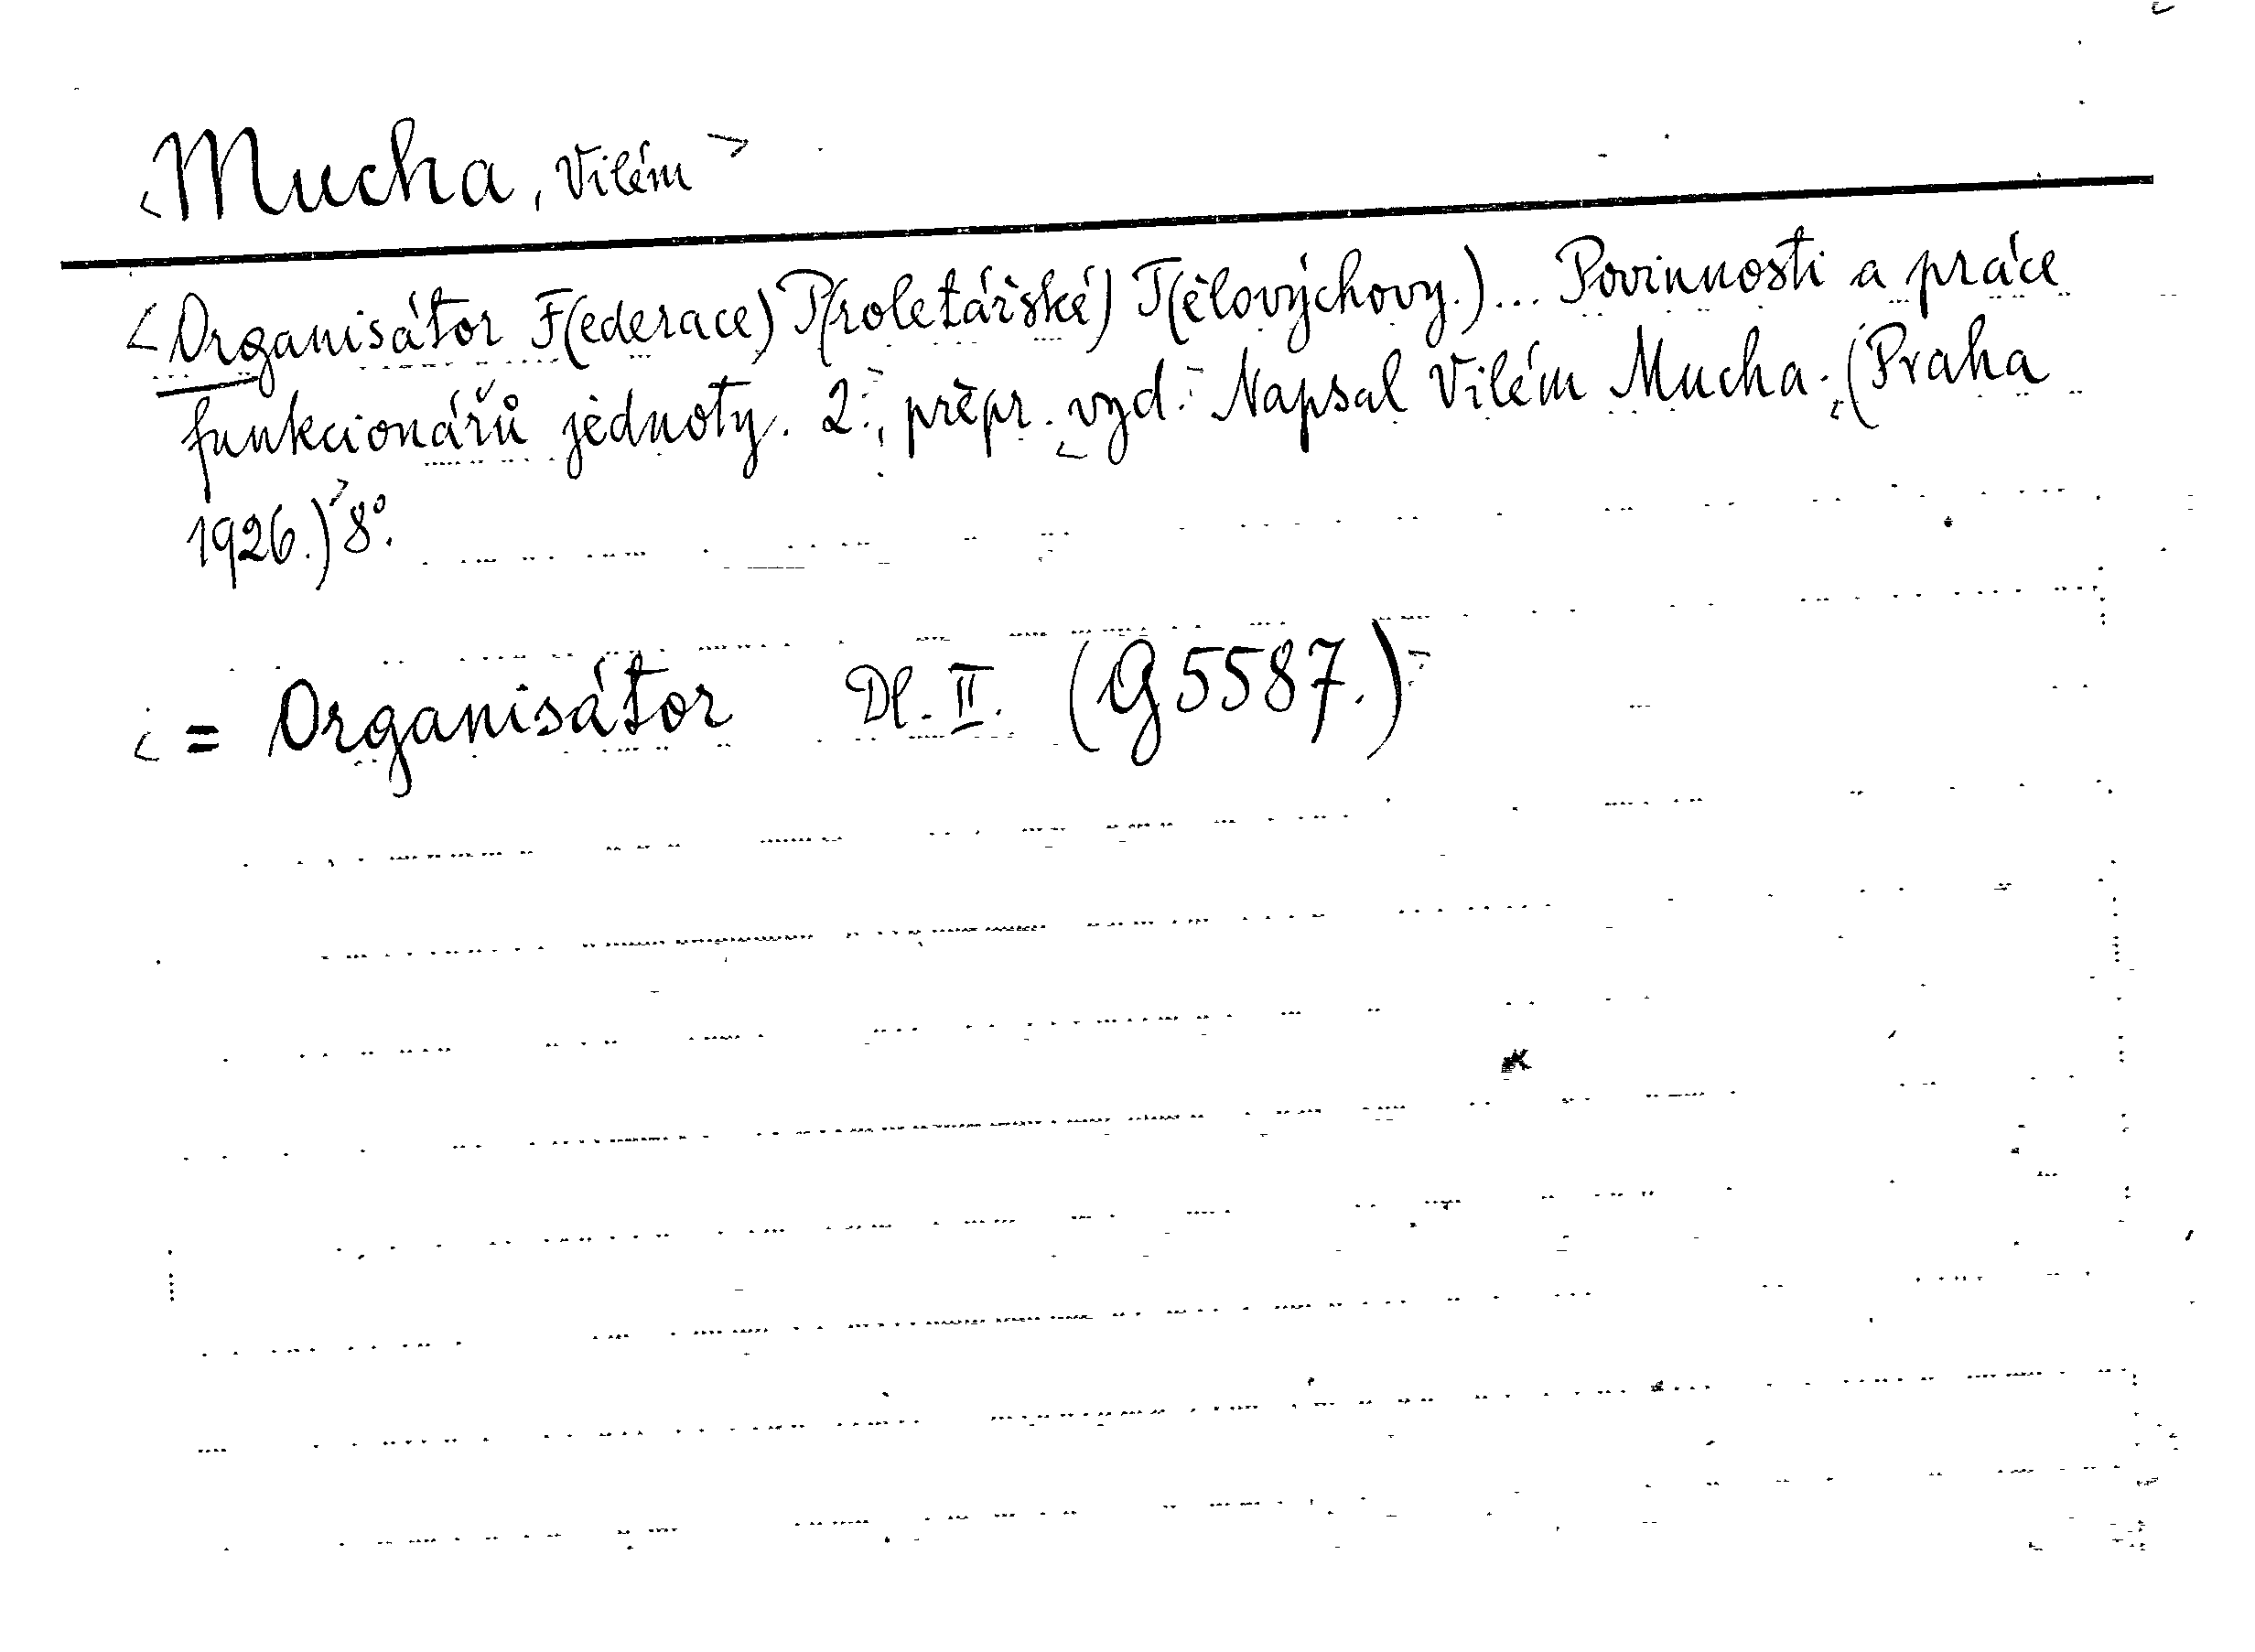 <Mucha, Vilém>
<Organisátor F(ederace) P(roletářské) T(ělovýchovy.)... Povinnosti a práce
funkcionářů jednoty. 2., přepr. vyd. Napsal Vilém Mucha. (Praha
1926.)> 8°.
<= Organisátor Dl. II. (G 5587.)>